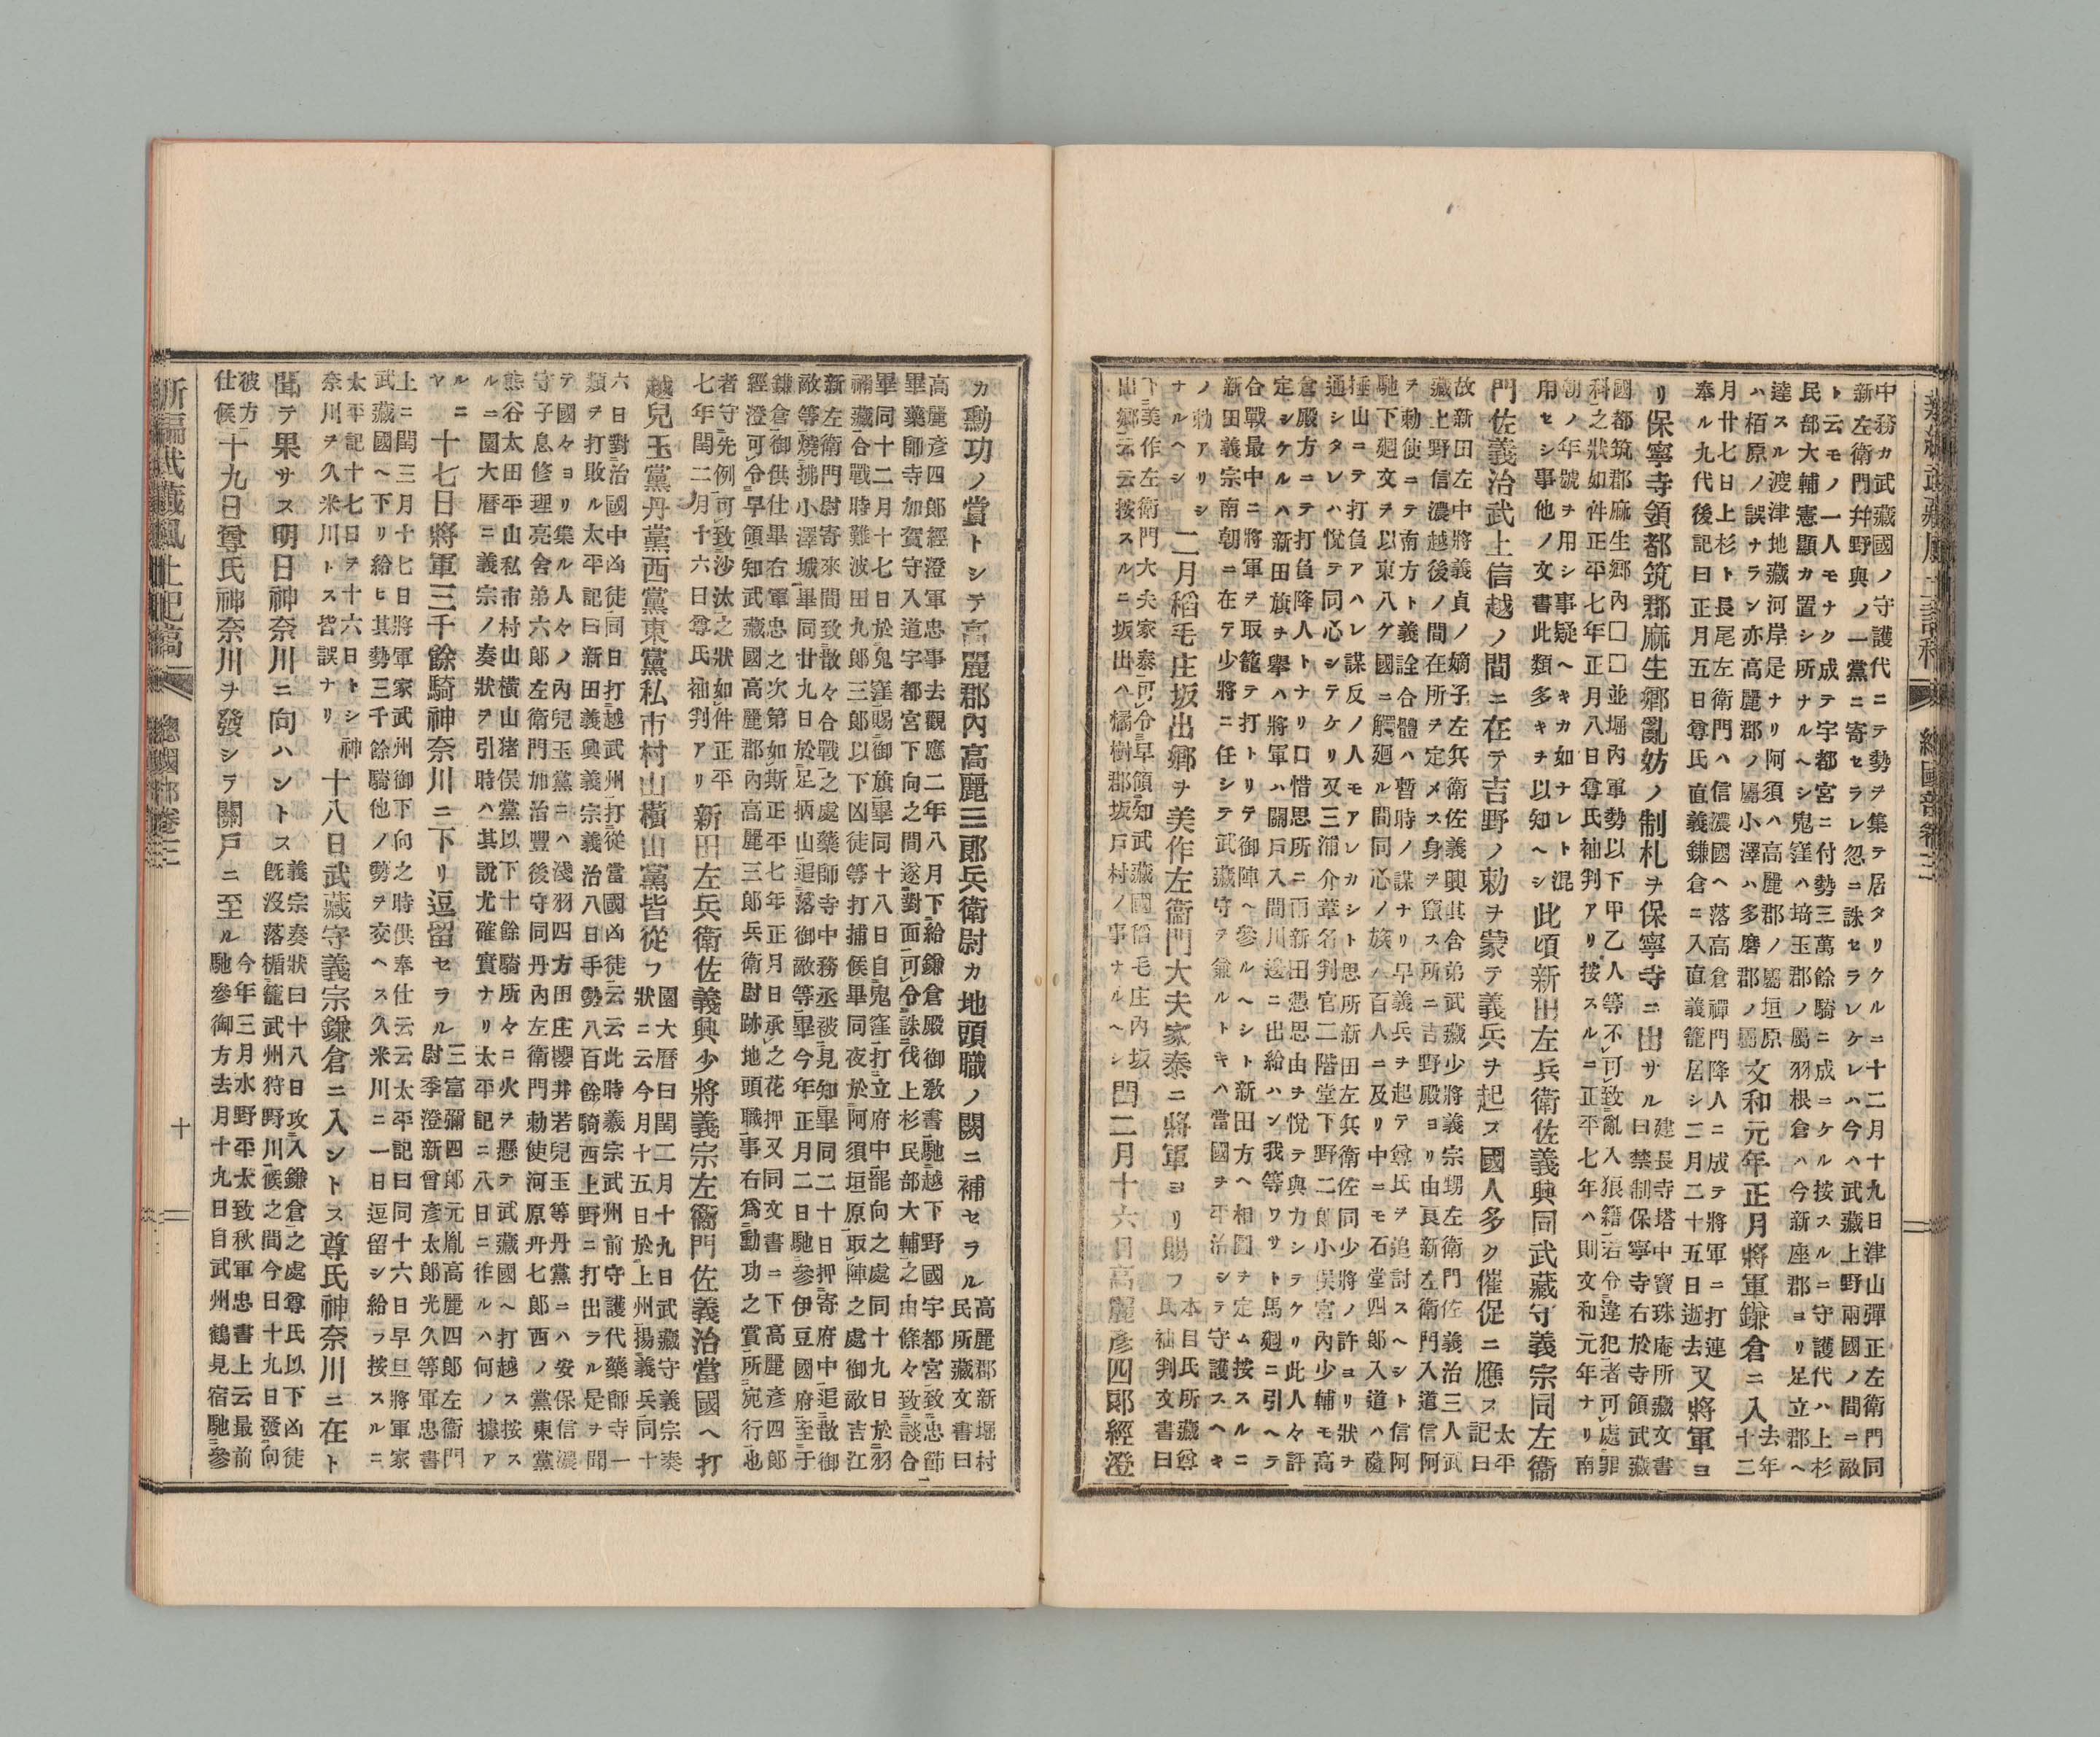 新編武藏風土記稿 總國部卷三
中務カ武藏國ノ守護代ニテ勢ヲ集テ居タリクルニ十二月十九日津山彈正左衛門同
新左衛門幷野與ノ一黨ニ寄セラレ忽ニ誅セラレケレハ今ハ武藏上野兩國ノ間ニ敵
ト云モノ一人モナク成テ宇都宮ニ付勢三萬餘騎ニ成ニケル按スルニ守護代ハ上杉
民部大輔憲顯カ置シ所ナルヘシ鬼窪ハ埼玉郡ノ屬羽根倉ハ今新座郡ヨリ足立郡ヘ
達スル渡津地藏河岸是ナリ阿須ハ高麗郡ノ屬垣原
ハ栢原ノ誤ナラン亦高麗郡ノ屬小澤ハ多磨郡ノ屬
文和元年正月將軍鎌倉ニ入
去年
十二
月廿七日上杉ト長尾左衛門ハ信濃國ヘ落高倉禪門降人ニ成テ將軍ニ打連
奉ル九代後記曰正月五日尊氏直義鎌倉ニ入直義籠居シ二月二十五日逝去
又將軍ヨ
リ保寧寺領都筑郡麻生鄕亂妨ノ制札ヲ保寧寺ニ出サル
建長寺塔中寶珠庵所藏文書
曰禁制保寧寺右於寺領武藏
國都筑郡麻生鄕內□□並堀內軍勢以下甲乙人等不可致亂入狼籍若令違犯者可處罪
科之狀如件正平七年正月八日尊氏袖判アリ按スルニ正平七年ハ則文和元年ナリ南
朝ノ年號ヲ用シ事疑ヘキカ如ナレト混
用セシ事他ノ文書此類多キヲ以知ヘシ
此頃新田左兵衛佐義興同武藏守義宗同左衞
門佐義治武上信越ノ間ニ在テ吉野ノ勅ヲ蒙テ義兵ヲ起ス國人多ク催促ニ應ス
太平
記曰
故新田左中將義貞ノ嫡子左兵衛佐義興其舍弟武藏少將義宗甥左衛門佐義治三人武
藏上野信濃越後ノ間在所ヲ定メス身ヲ竄ス所ニ吉野殿ヨリ由良新左衛門入道信阿
ヲ勅使ニテ南方ト義詮合體ハ暫時ノ謀ナリ早義兵ヲ起テ尊氏ヲ追討スヘシト信阿
馳下廻文ヲ以東八ケ國ニ觸廻ル間同心ノ族八百人ニ及リ中ニモ石堂四郎入道ハ薩
埵山ニテ打負アハレ謀反ノ人モアレカシト思所新田左兵衛佐同少將ノ許ヨリ狀ヲ
通シタレハ悅テ同心シテケリ又三浦介葦名判官二階堂下野二郎小俣宮內少輔モ高
倉殿方ニテ打負降人トナリ口惜思所ニ兩新田憑思由ヲ悅テ與力シテケリ此人々評
定シケルハ新田旗ヲ擧ハ將軍ハ關戶入間川邊ニ出給ハン我等ワサト馬廻ニ引ヘテ
合戰最中ニ將軍ヲ取籠テ打トリテ御陣ヘ參ルヘシト新田方ヘ相圖ヲ定ム按スルニ
新田義宗南朝ニ在テ少將ニ任シテ武藏守ヲ兼ルトキハ當國ヲ平治シテ守護スヘキ
ノ勅アリシ
ナルヘシ
二月稻毛庄坂出鄕ヲ美作左衞門大夫家泰ニ將軍ヨリ賜フ
本目氏所藏尊
氏袖判文書曰
下美作左衛門大夫家泰可令早領知武藏國稻毛庄內坂
出鄕云云按スルニ坂出ハ橘樹郡坂戶村ノ事ナルヘシ
閏二月十六日高麗彥四郞經澄
カ勳功ノ賞トシテ高麗郡內高麗三郞兵衛尉カ地頭職ノ闕ニ補セラル
高麗郡新堀村
民所藏文書曰
高麗彥四郎經澄軍忠事去觀應二年八月下給鎌倉殿御敎書馳越下野國宇都宮致忠節
畢藥師寺加賀守入道宇都宮下向之間遂對面可令誅伐上杉民部大輔之由條々致談合
畢同十二月十七日於鬼窪賜御旗畢同十八日自鬼窪打立府中罷向之處同十九日於羽
禰藏合戰時難波田九郎三郎以下凶徒等打捕候畢同夜於阿須垣原取陣之處御敵吉江
新左衛門尉寄來間致散々合戰之處藥師寺中務丞被見知畢同二十日押寄府中追散御
敵等燒拂小澤城畢同廿九日於足柄山追落御敵等畢今年正月二日馳參伊豆國府至于
鎌倉御供仕畢右軍忠之次第如斯正平七年正月日承之花押又同文書ニ下高麗彥四郎
經澄可令早領知武藏國高麗郡內高麗三郎兵衛尉跡地頭職事右爲勳功之賞所宛行也
者守先例可致沙汰之狀如件正平
七年閏二月十六日尊氏袖判アリ
新田左兵衛佐義興少將義宗左衞門佐義治當國ヘ打
越兒玉黨丹黨西黨東黨私市村山橫山黨皆從フ
園大曆曰閏二月十九日武藏守義宗奏
狀ニ云今月十五日於上州揚義兵同十
六日對治國中凶徒同日打越武州打從當國凶徒云云此時義宗武州前守護代藥師寺一
類ヲ打敗ル太平記曰新田義興義宗義治八日手勢八百餘騎西上野ニ打出ラル是ヲ聞
テ國々ヨリ集ル人々ノ內兒玉黨ニハ淺羽四方田庄櫻井若兒玉等丹黨ニハ安保信濃
守子息修理亮舍弟六郎左衛門加治豐後守同丹內左衛門勅使河原丹七郎西ノ黨東黨
熊谷太田平山私市村山橫山猪俣黨以下十餘騎所々ニ火ヲ懸テ武藏國ヘ打越ス按ス
ルニ園大曆ニ義宗ノ奏狀ヲ引時ハ其說尤確實ナリ太平記ニ八日ニ作ルハ何ノ據ア
ルニ
ヤ
十七日將軍三千餘騎神奈川ニ下リ逗留セラル
三富彌四郎元胤高麗四郎左衞門
尉季澄新曾彥太郎光久等軍忠書
上ニ閏三月十七日將軍家武州御下向之時供奉仕云云太平記曰同十六日早旦將軍家
武藏國ヘ下リ給ヒ其勢三千餘騎他ノ勢ヲ交ヘス久米川ニ一日逗留シ給フ按スルニ
太平記十七日ヲ十六日トシ神
奈川ヲ久米川トス皆誤ナリ
十八日武藏守義宗鎌倉ニ入ントス尊氏神奈川ニ在ト
聞テ果サス明日神奈川ニ向ハントス
義宗奏狀曰十八日攻入鎌倉之處尊氏以下凶徒
旣沒落楯籠武州狩野川候之間今日十九日發向
彼方
仕候
十九日尊氏神奈川ヲ發シラ關戶ニ至ル
今年三月水野平太致秋軍忠書上云最前
馳參御方去月十九日自武州鶴見宿馳參
新編武藏風土記稿 總國部卷三 十